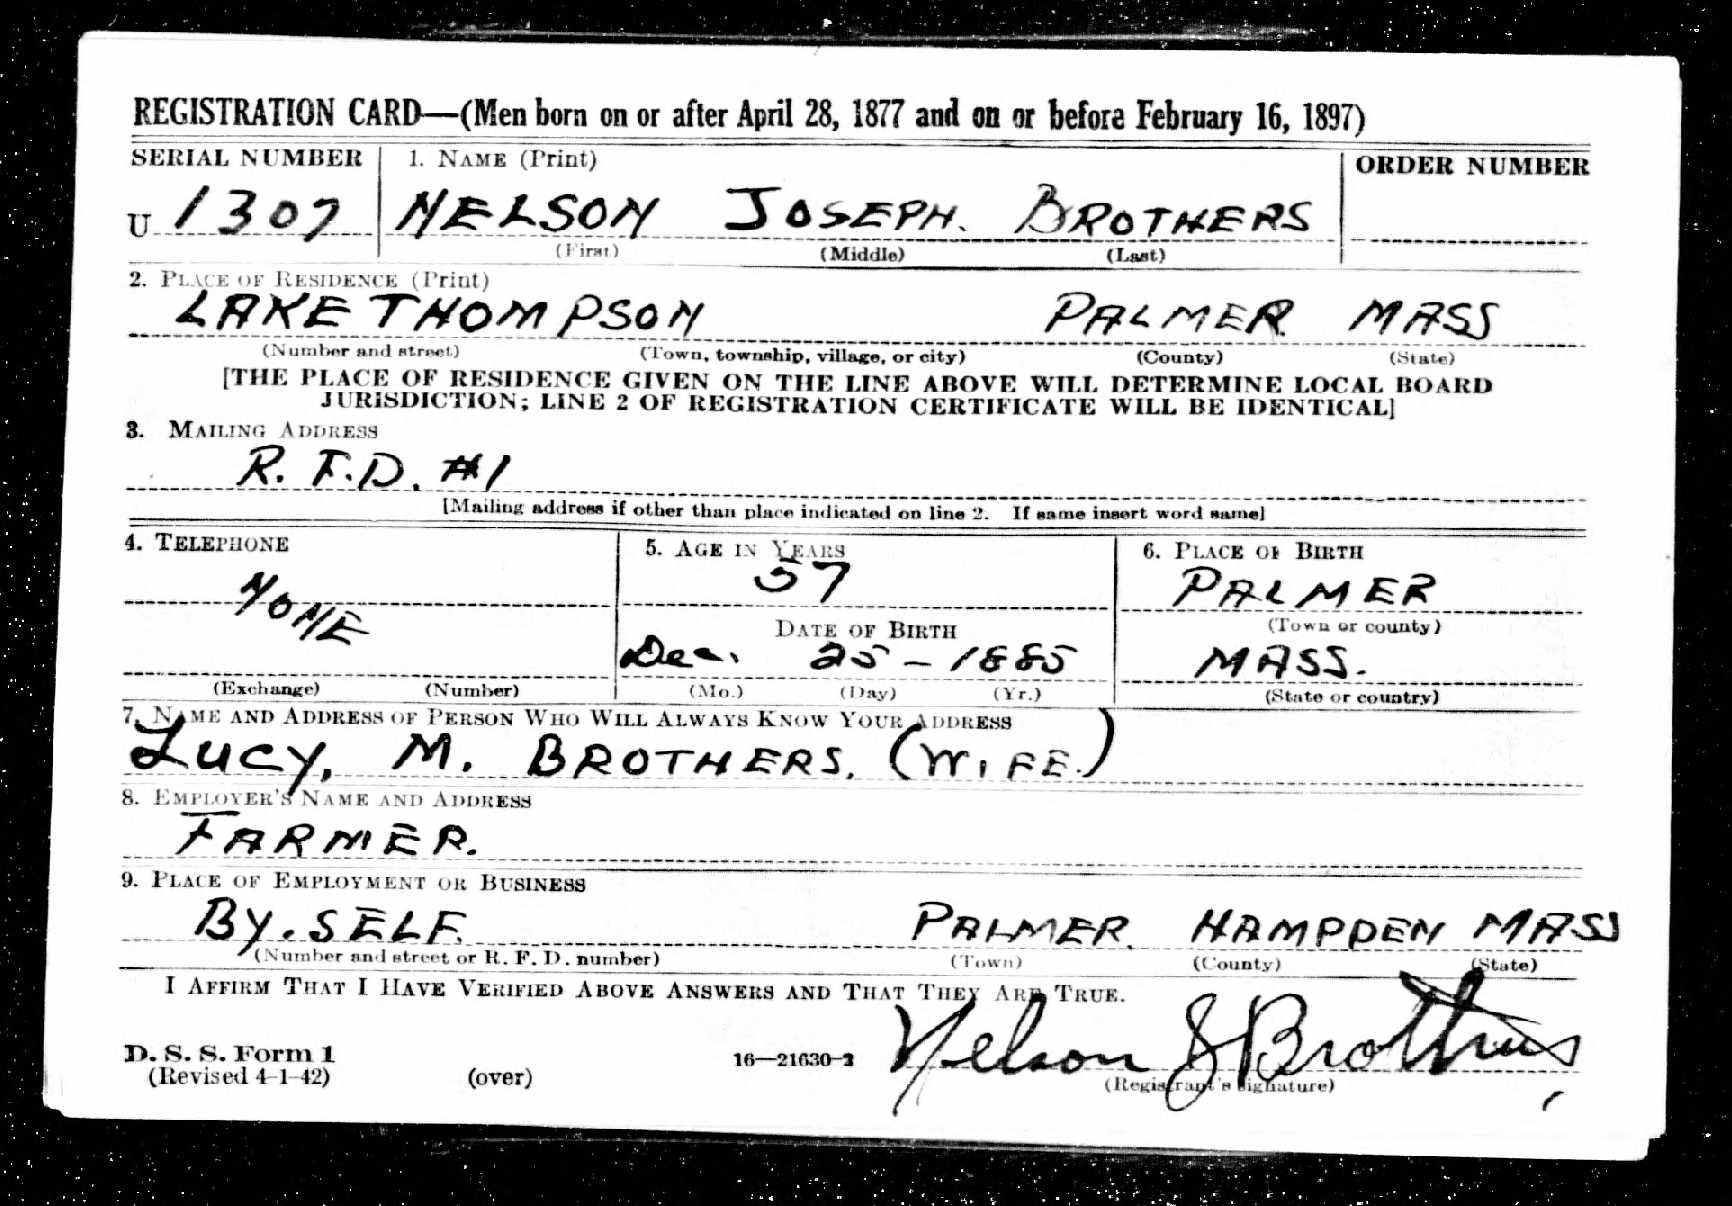 REGISTRATION CARD—(Men born on or after April 28, 1877 and on or before February 16, 1897)
SERIAL NUMBER 1. NAME (Print) ORDER NUMBER
U 1307 NELSON JOSEPH. BROTHERS
(First) (Middle) (Last)
2. PLACE OF RESIDENCE (Print)
LAKE THOMPSON PALMER MASS
(Number and street) (Town, township, village, or city) (County) (State)
[THE PLACE OF RESIDENCE GIVEN ON THE LINE ABOVE WILL DETERMINE LOCAL BOARD
JURISDICTION; LINE 2 OF REGISTRATION CERTIFICATE WILL BE IDENTICAL]
3. MAILING ADDRESS
R. F.D. #1
[Mailing address if other than place indicated on line 2. If same insert word same]
4. TELEPHONE 5. AGE IN YEARS 6. PLACE OF BIRTH
NONE 57 PALMER
DATE OF BIRTH (Town or county)
Dec. 25 - 1885 MASS.
(Exchange) (Number) (Mo.) (Day) (Yr.) (State or country)
7. NAME AND ADDRESS OF PERSON WHO WILL ALWAYS KNOW YOUR ADDRESS
LUCY, M. BROTHERS. (WIFE.)
8. EMPLOYER'S NAME AND ADDRESS
FARMER.
9. PLACE OF EMPLOYMENT OR BUSINESS
BY. SELF. PALMER. HAMPDEN MASS
(Number and street or R. F. D. number) (Town) (County) (State)
I AFFIRM THAT I HAVE VERIFIED ABOVE ANSWERS AND THAT THEY ARE TRUE.
Nelson J Brothers
D. S. S. Form 1
(Revised 4-1-42) (over) 16—21630-2 (Registrant's signature)